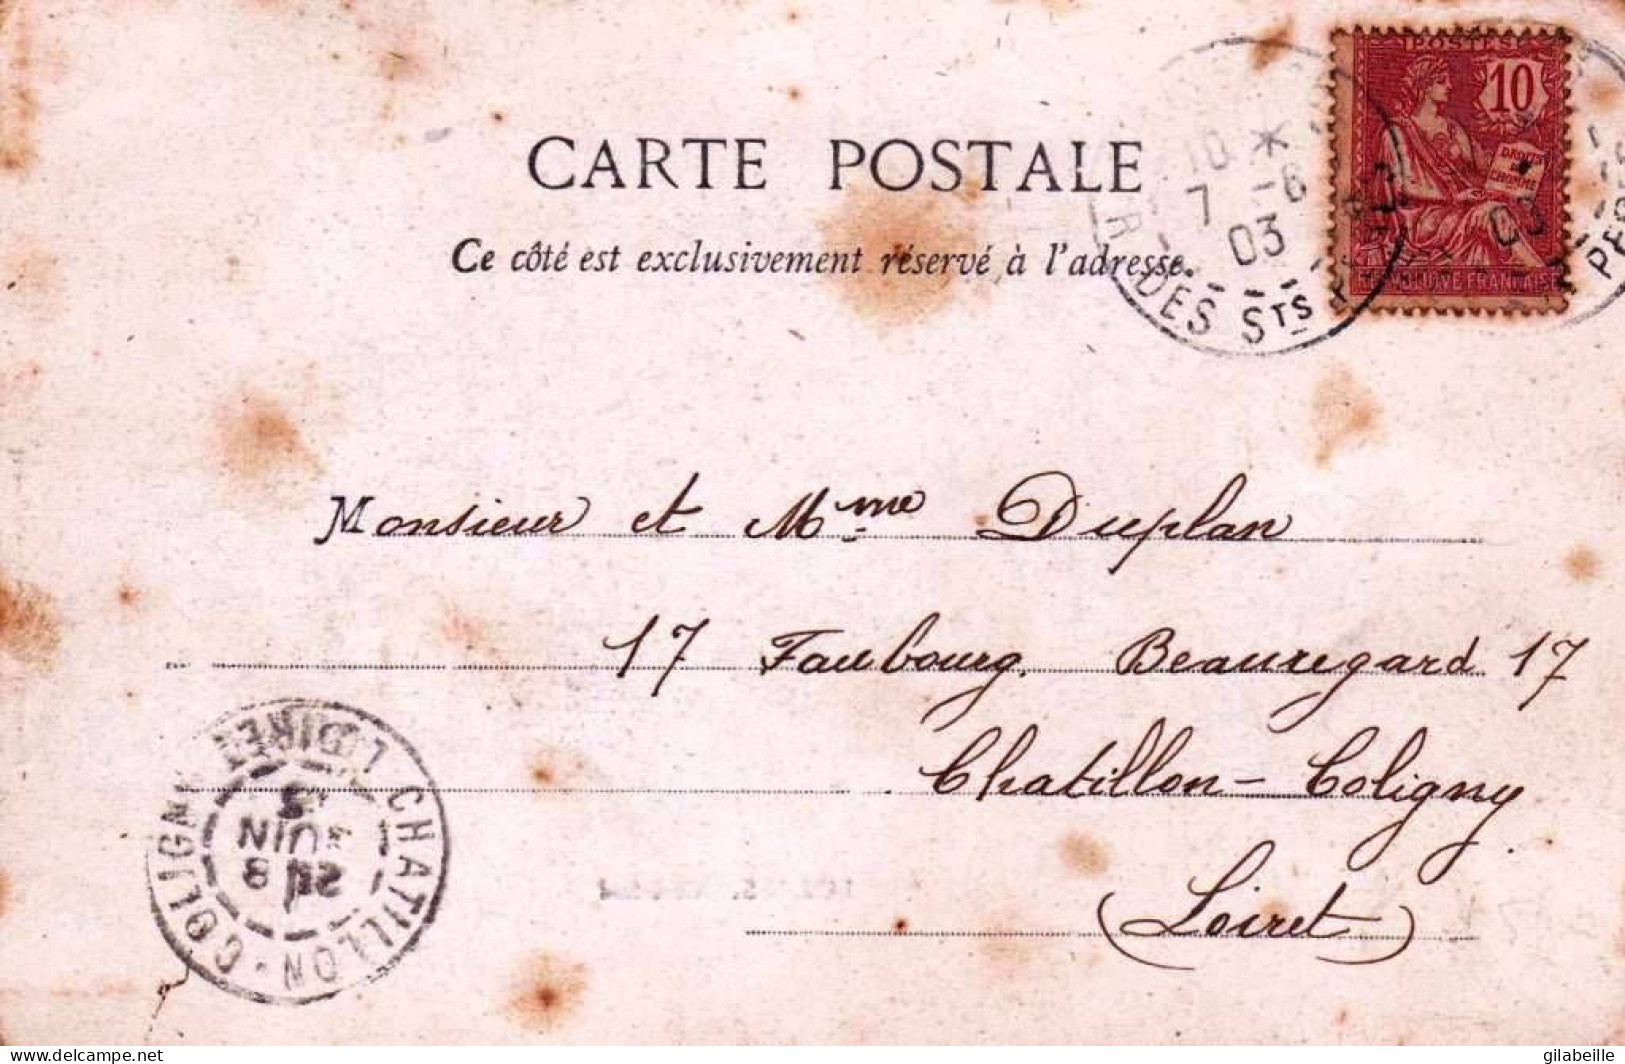 POSTES
10
DROITS
DE
L'HOMME
REPUBLIQUE FRANÇAISE
10 *
7 -6
03
R. DES STS PE
03
CARTE POSTALE
Ce côté est exclusivement réservé à l'adresse.
Monsieur et Mme Duplan
17 Faubourg Beauregard 17
Chatillon-Coligny
(Loiret)
CHATILLON-COLIGNY LOIRET
8
JUIN
www.delcampe.net
gilabeille